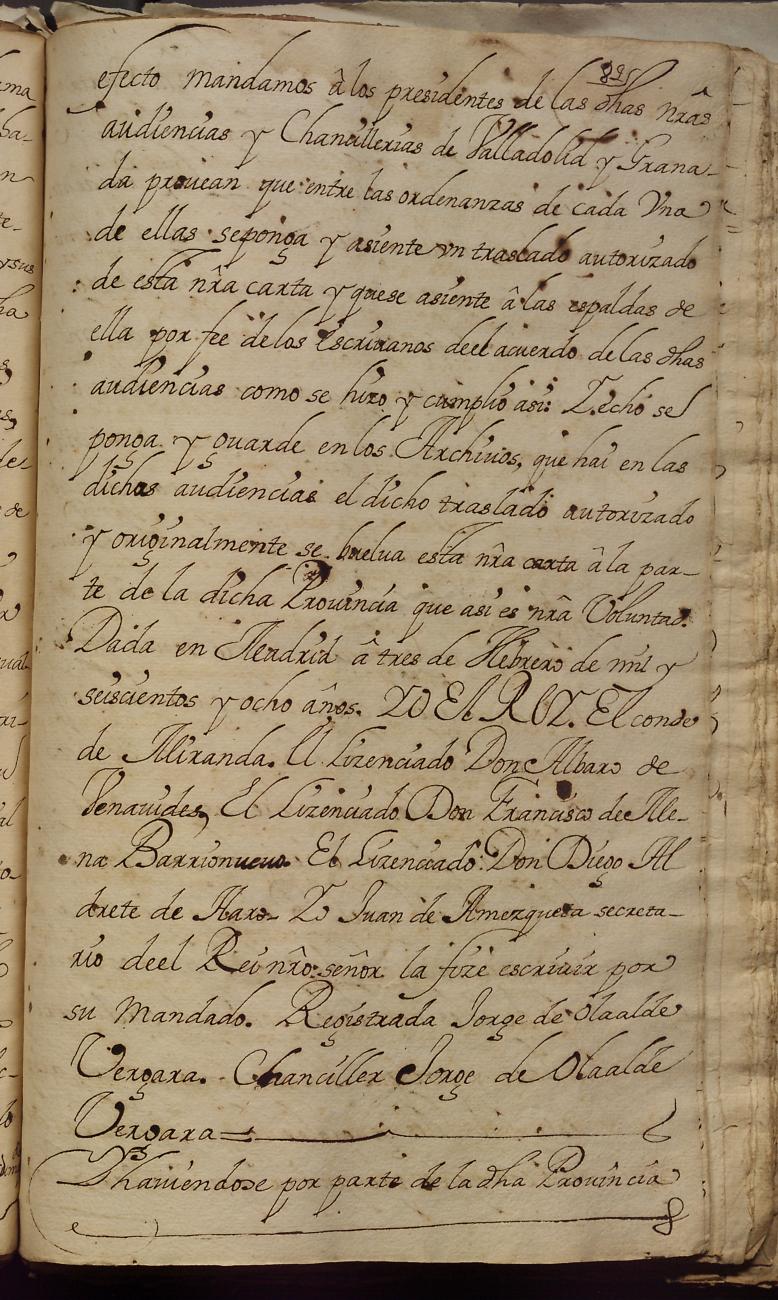 efecto mandamos â los presidentes de las dhas nrâs
audiencias y Chancillerias de Valladolid y Grana-
da prouean que entre las ordenanzas de cada Vna
de ellas seponga y asiente vn traslado autorizado
de esta nrâ carta y quese asiente â las espaldas de
ella por fee delos Escriuanos deel acuerdo de las dhas
audiencias como se hizo y cumplio asi: Yecho se
ponga y guarde en los Archiuos, que hai en las
dichas audiencias el dicho traslado autorizado
y originalmente se buelua esta nrâ carta â la par-
te de la dicha Prouincia que asi es nrâ Voluntad.
Dada en Madrid â tres de Hebrero de mil y
seiscientos y ocho años. YO El REY. El conde
de Miranda. El Lizenciado Don Albaro de
Venauides, El Lizenciado Don Francisco de Me-
na Barrionueuo. El Lizenciado Don Diego Al
drete de Haro- Yo Juan de Amezqueta secreta-
rio deel Rei nrô señor la fize escriuir por
su Mandado. Registrada Jorge de Olaalde
Vergara. Chanciller Jorge de Olaalde
Vergara=
Yhauiendose por parte de la dha Prouincia